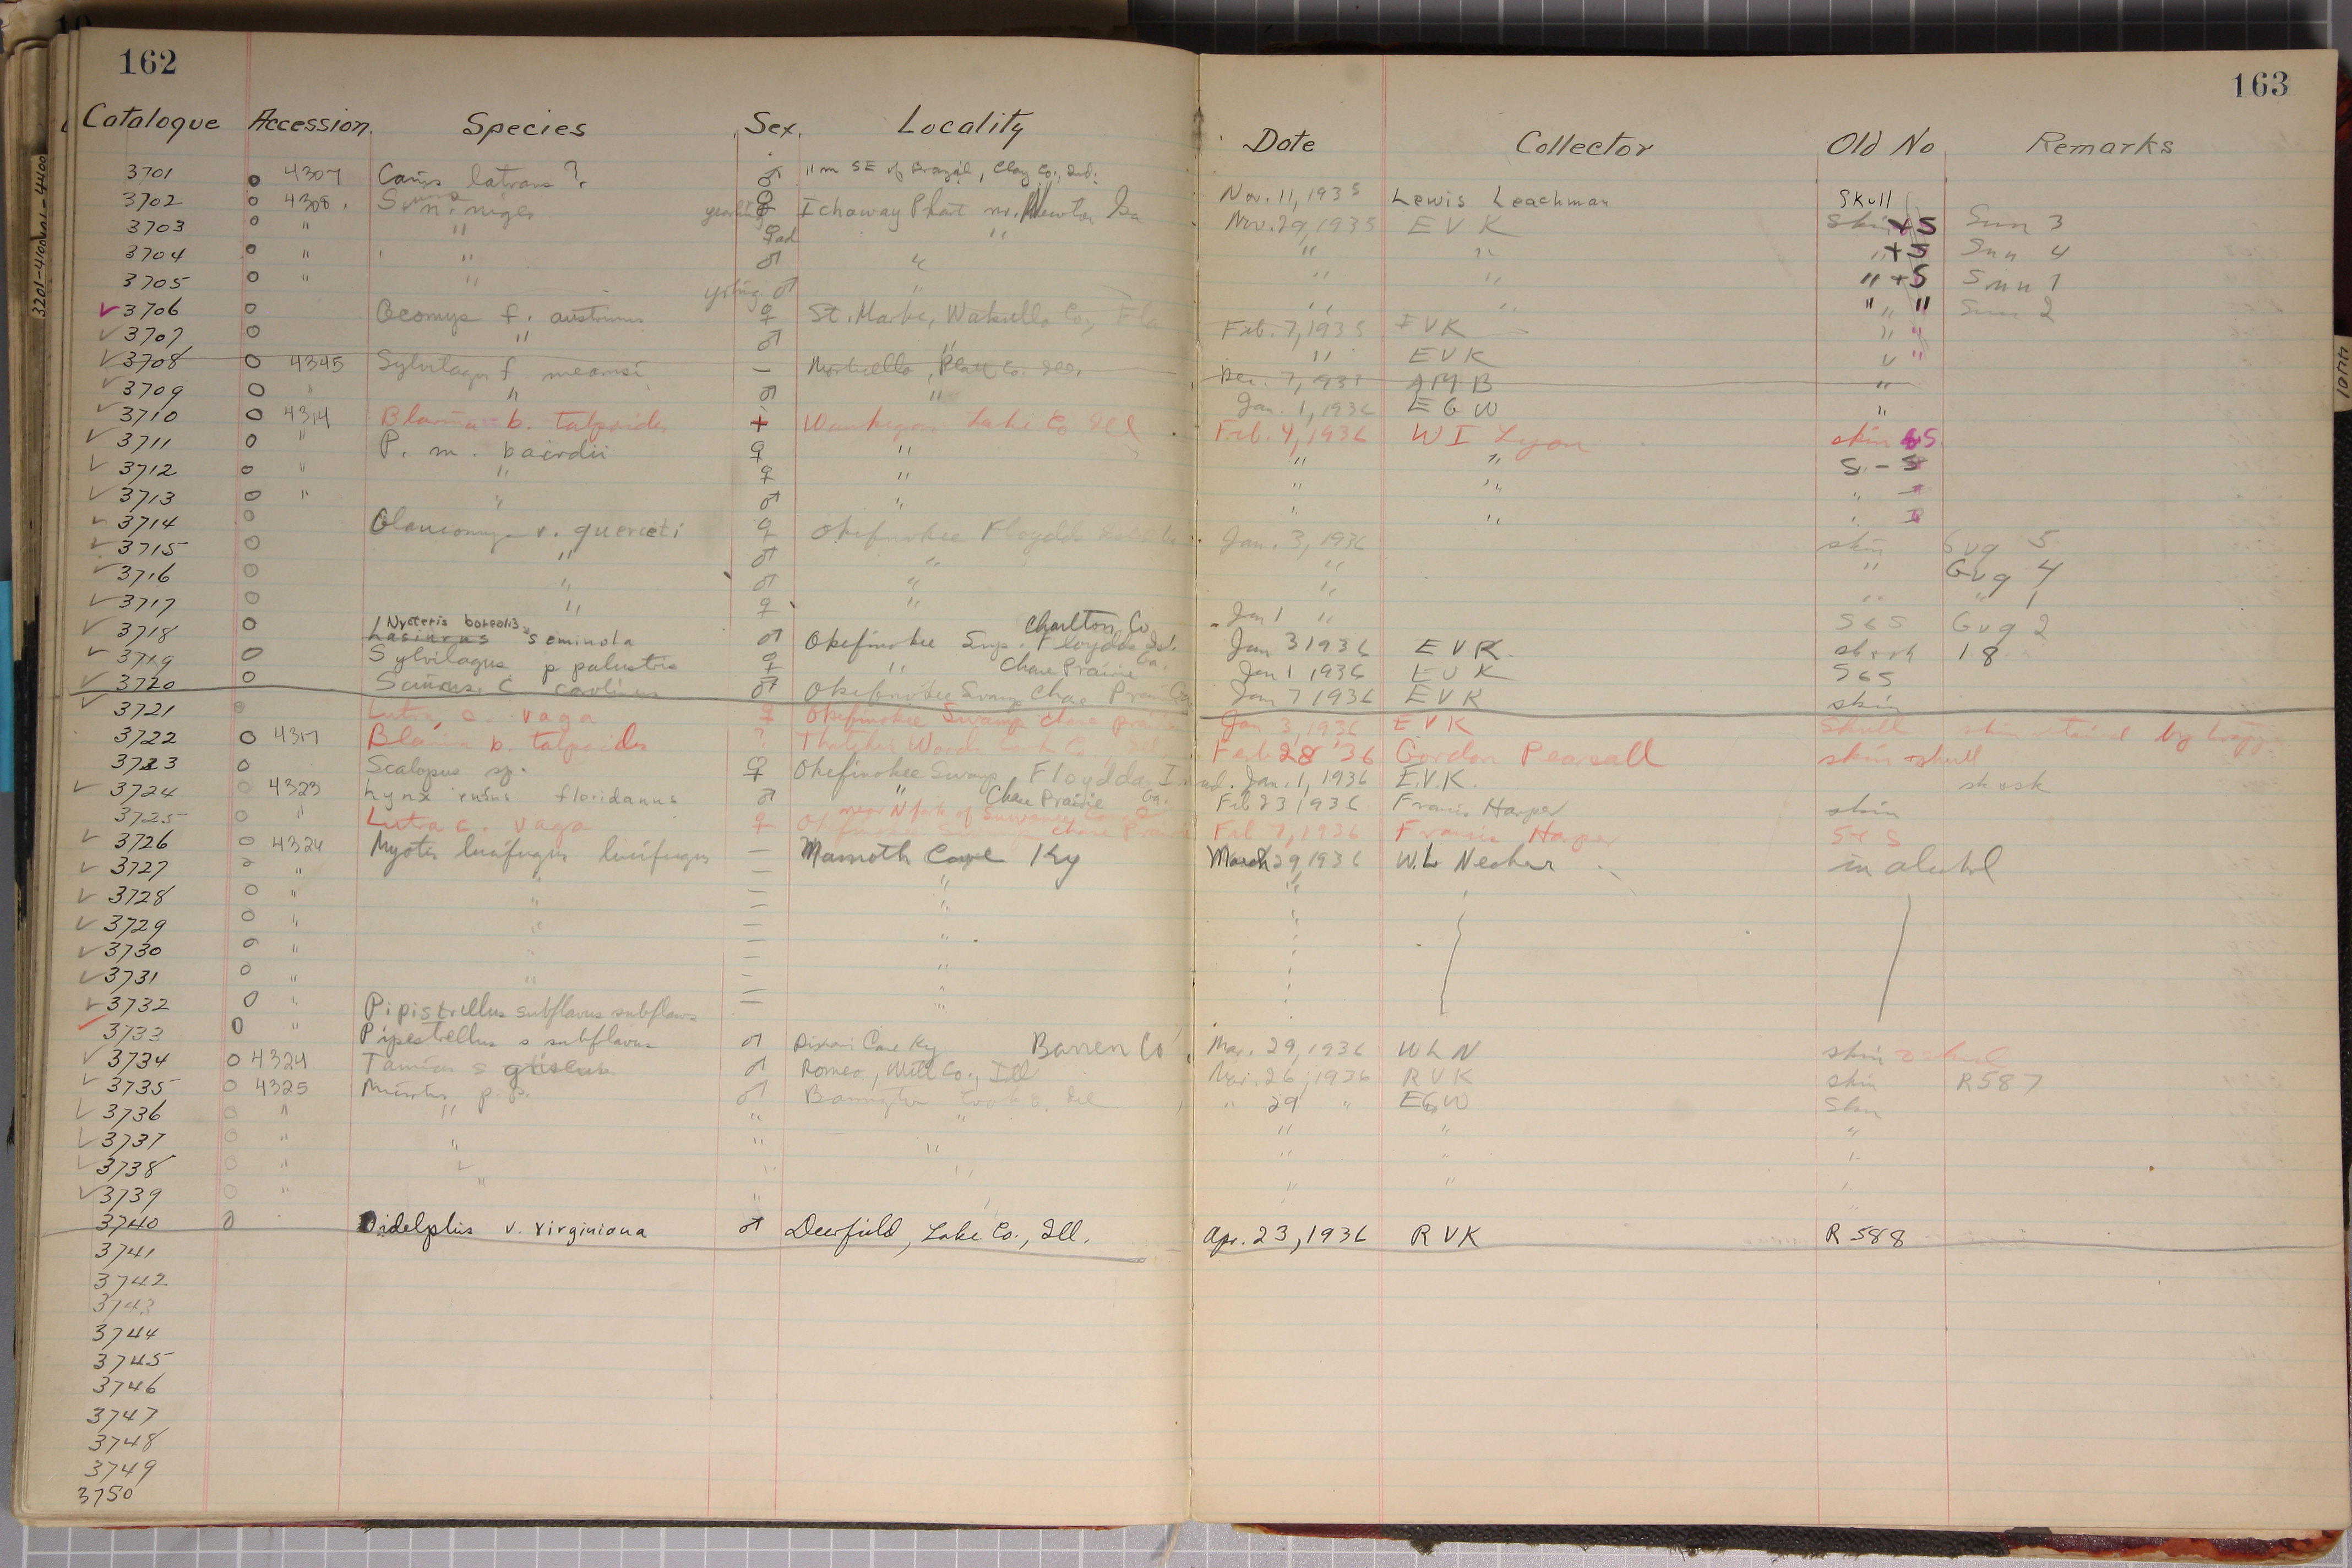 162
163
Catalogue Accession Species Sex Locality Date Collector Old No Remarks
3701 o 4307 Canis latrans ? ♂ 11 m SE of Brazil, Clay Co., Ind. Nov. 11, 1935 Lewis Leachman Skull
3702 o 4308 S. n. niger yearling ♀ Ichaway Plant nr. Newton Ga Nov. 29, 1935 E V K Skin + S Snn 3
3703 o " " ♀ ad " " " " + S Snn 4
3704 o " " ♂ " " " " + S Snn 1
3705 o " " young ♂ " " " " " Snn 2
3706 o Geomys f. austrinus ♀ St. Marks, Wakulla Co., Fla Feb. 7, 1935 E V K " "
3707 o " ♂ " " E V K " "
3708 o 4345 Sylvilagus f mearnsi — Monticello, Platt Co. Ill. Dec. 7, 1935 "
3709 o " " ♂ " Jan. 1, 1936 E G W "
3710 o 4314 Blarina b. talpoides + Waukegan Lake Co Ill Feb. 4, 1936 W I Lyon skin & S
3711 o " P. m. bairdii ♀ " " " S - S
3712 o " " ♀ " " " "
3713 o " " ♂ " " " "
3714 o Glaucomys v. querceti ♀ Okefinokee Floydds Jan. 3, 1936 skin Gvq 5
3715 o " ♂ " " " Gvq 4
3716 o " ♂ " " " " 1
3717 o " ♀ " Jan 1 " S & S Gvq 2
Nycteris borealis Charlton Co
3718 o Lasiurus seminola ♂ Okefinokee Swp. Floydds Isl. Jan 3 1936 E V K. sk + sk 18
3719 o Sylvilagus p palustris ♀ " Chase Prairie Ga. Jan 1 1936 E V K S & S
3720 o Sciurus c carolinus ♂ Okefinokee Swamp Chase Prairie Jan 7 1936 E V K skin
3721 Lutra c. vaga ♀ Okefinokee Swamp chase prairie Jan 3, 1936 E V K Skull skin retained by
3722 o 4317 Blarina b. talpoides ? Thatcher Woods Cook Co., Ill. Feb 28 '36 Gordon Pearsall skin & skull
3723 o Scalopus sp. ♀ Okefinokee Swamp, Floydds I. Jan. 1, 1936 E.V.K. sk & sk
3724 o 4323 Lynx rufus floridanus ♂ " Chase Prairie Ga. Feb 23 1936 Francis Harper skin
near N fork of Suwanee Canal
3725 o " Lutra c. vaga ♀ chase Prairie Feb 7, 1936 Francis Harper S & S
3726 o 4324 Myotis lucifugus lucifugus — Mamoth Cave Ky March 29, 1936 W.L Necker in alcohol
3727 o " " — " "
3728 o " " — " "
3729 o " " — " "
3730 o " " — "
3731 o " " — "
3732 o " Pipistrellus subflavus subflavus — "
3733 o " Pipestrellus s subflavus ♂ Cave Ky Barren Co Mar. 29, 1936 W L N skin & skul
3734 o 4324 Tamias s griseus ♂ Romeo, Will Co., Ill Mar. 26, 1936 R V K skin R587
3735 o 4325 Microtus p. p. ♂ Barrington Cook Co. Ill " 29 " E G W Skin
3736 o " " " " " " "
3737 o " " " " " " "
3738 o " " " "
3739 o " " " " " "
3740 o Didelphis v. virginiana ♂ Deerfield, Lake Co., Ill. Apr. 23, 1936 R V K R 588
3741
3742
3743
3744
3745
3746
3747
3748
3749
3750
3201-4100